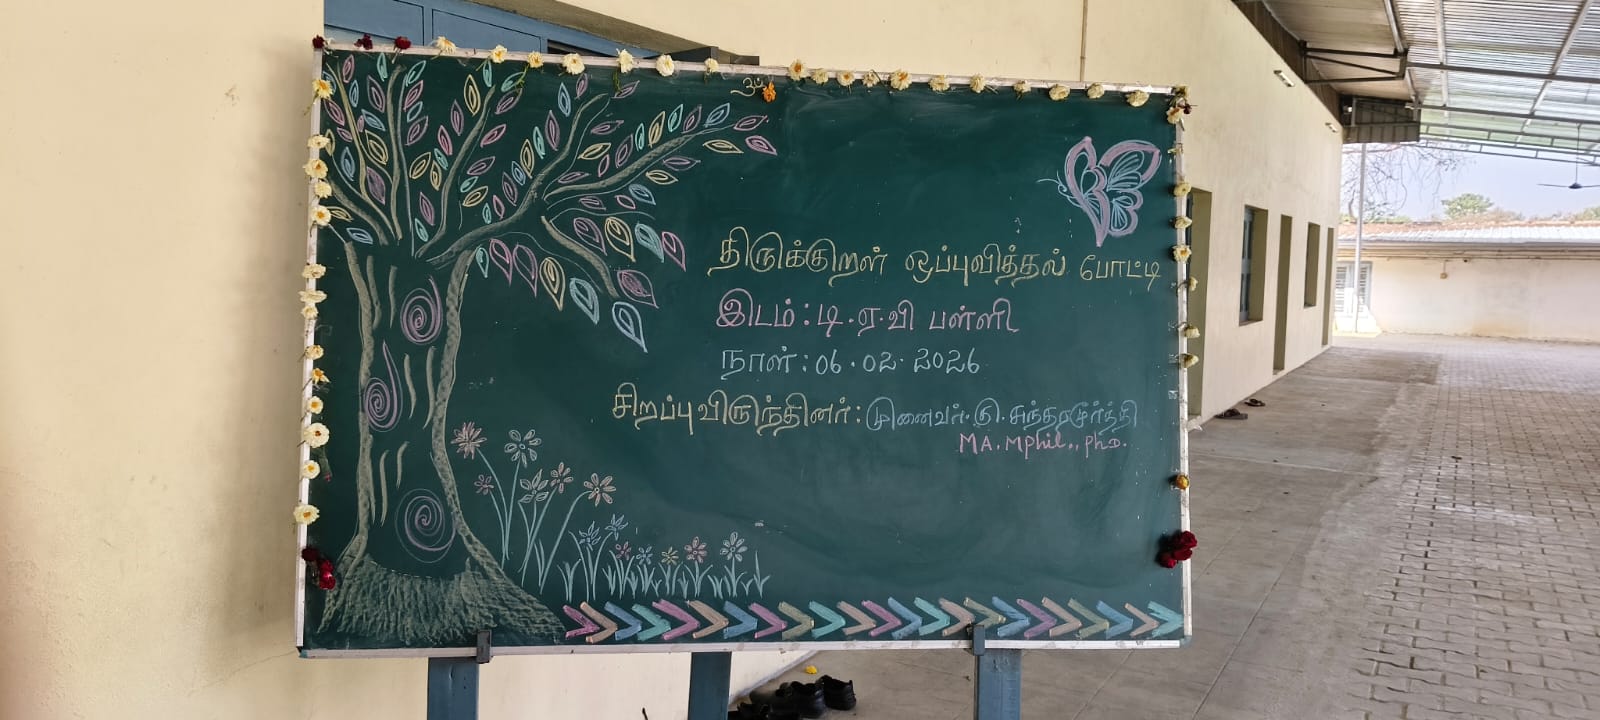 ஓம்
திருக்குறள் ஒப்புவித்தல் போட்டி
இடம் : டி.ஏ.வி பள்ளி
நாள் : 06.02.2026
சிறப்பு விருந்தினர் : முனைவர்.கு.சுந்தரமூர்த்தி
MA.Mphil.,ph.D.